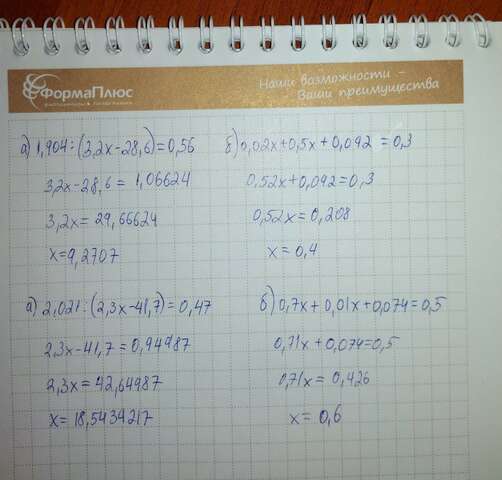 ФормаПлюс
Наши возможности -
Ваши преимущества
а) 1,904:(3,2x-28,6)=0,56
3,2x-28,6=1,06624
3,2x=29,66624
x=9,2707
б) 0,02x+0,5x+0,092=0,3
0,52x+0,092=0,3
0,52x=0,208
x=0,4
а) 2,021:(2,3x-41,7)=0,47
2,3x-41,7=0,94987
2,3x=42,64987
x=18,5434217
б) 0,7x+0,01x+0,074=0,5
0,71x+0,074=0,5
0,71x=0,426
x=0,6